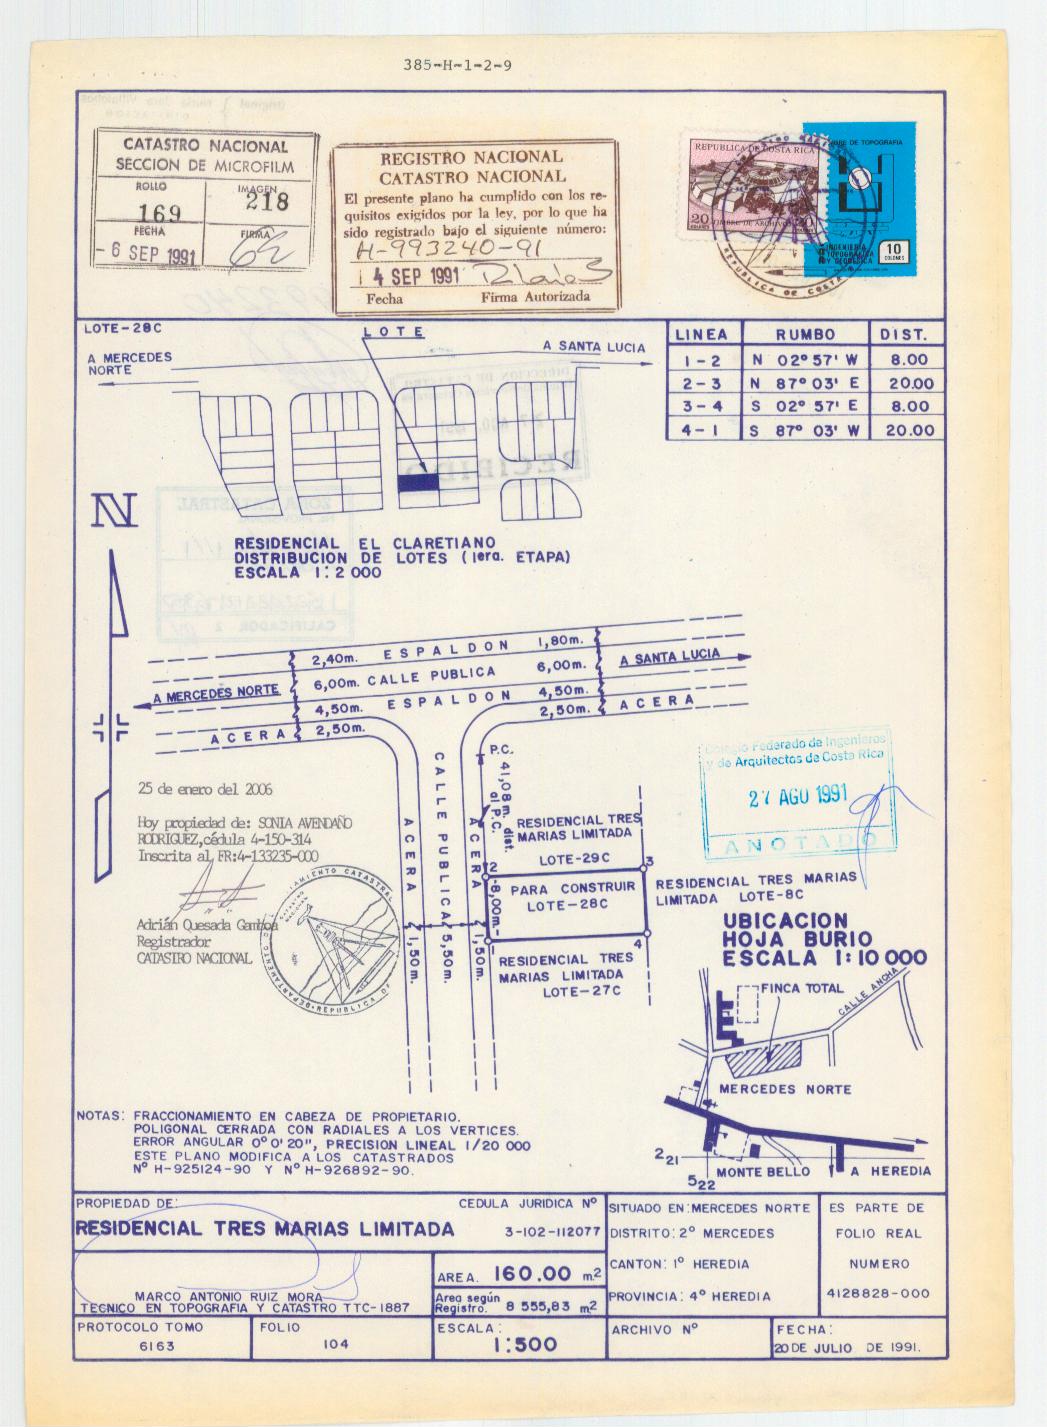 385-H-1-2-9
CATASTRO NACIONAL
SECCION DE MICROFILM
ROLLO
IMAGEN
169
218
FECHA
FIRMA
- 6 SEP 1991
REGISTRO NACIONAL
CATASTRO NACIONAL
El presente plano ha cumplido con los re-
quisitos exigidos por la ley, por lo que ha
sido registrado bajo el siguiente número:
H-993240-91
4 SEP 1991
Fecha
Firma Autorizada
REPUBLICA DE COSTA RICA
20
TIMBRE DE ARCHIVO
DE TOPOGRAFIA
INGENIERIA
TOPOGRAFICA
Y GEODESICA
10
COLONES
REPUBLICA DE COSTA
LOTE-28C
LOTE
A MERCEDES
NORTE
A SANTA LUCIA
LINEA RUMBO DIST.
1-2 N 02°57' W 8.00
2-3 N 87°03' E 20.00
3-4 S 02°57' E 8.00
4-1 S 87°03' W 20.00
N
RESIDENCIAL EL CLARETIANO
DISTRIBUCION DE LOTES (1era. ETAPA)
ESCALA 1:2 000
2,40m. ESPALDON 1,80m.
6,00m. CALLE PUBLICA 6,00m.
A SANTA LUCIA
A MERCEDES NORTE
4,50m. ESPALDON 4,50m.
ACERA 2,50m.
2,50m. ACERA
P.C.
41,08m. dist.
al P.C.
CALLE PUBLICA
5,50m.
ACERA
1,50m.
ACERA
1,50m.
25 de enero del 2006
Hoy propiedad de: SONIA AVENDAÑO
RODRIGUEZ,cédula 4-150-314
Inscrita al FR:4-133235-000
Adrián Quesada Gamboa
Registrador
CATASTRO NACIONAL
Colegio Federado de Ingenieros
y de Arquitectos de Costa Rica
27 AGO 1991
ANOTADO
RESIDENCIAL TRES
MARIAS LIMITADA
LOTE-29C
2
3
8,00m.
PARA CONSTRUIR
LOTE-28C
1
4
RESIDENCIAL TRES MARIAS
LIMITADA LOTE-8C
RESIDENCIAL TRES
MARIAS LIMITADA
LOTE-27C
UBICACION
HOJA BURIO
ESCALA 1:10 000
FINCA TOTAL
CALLE ANCHA
MERCEDES NORTE
2 21
MONTE BELLO
A HEREDIA
5 22
NOTAS: FRACCIONAMIENTO EN CABEZA DE PROPIETARIO.
POLIGONAL CERRADA CON RADIALES A LOS VERTICES.
ERROR ANGULAR 0°0'20", PRECISION LINEAL 1/20 000
ESTE PLANO MODIFICA A LOS CATASTRADOS
N° H-925124-90 Y N° H-926892-90.
PROPIEDAD DE:
CEDULA JURIDICA N°
RESIDENCIAL TRES MARIAS LIMITADA
3-102-112077
SITUADO EN: MERCEDES NORTE
DISTRITO: 2° MERCEDES
CANTON: 1° HEREDIA
PROVINCIA: 4° HEREDIA
ES PARTE DE
FOLIO REAL
NUMERO
4128828-000
MARCO ANTONIO RUIZ MORA
TECNICO EN TOPOGRAFIA Y CATASTRO TTC-1887
AREA. 160.00 m2
Area según
Registro. 8 555,83 m2
PROTOCOLO TOMO
6163
FOLIO
104
ESCALA:
1:500
ARCHIVO N°
FECHA:
20 DE JULIO DE 1991.